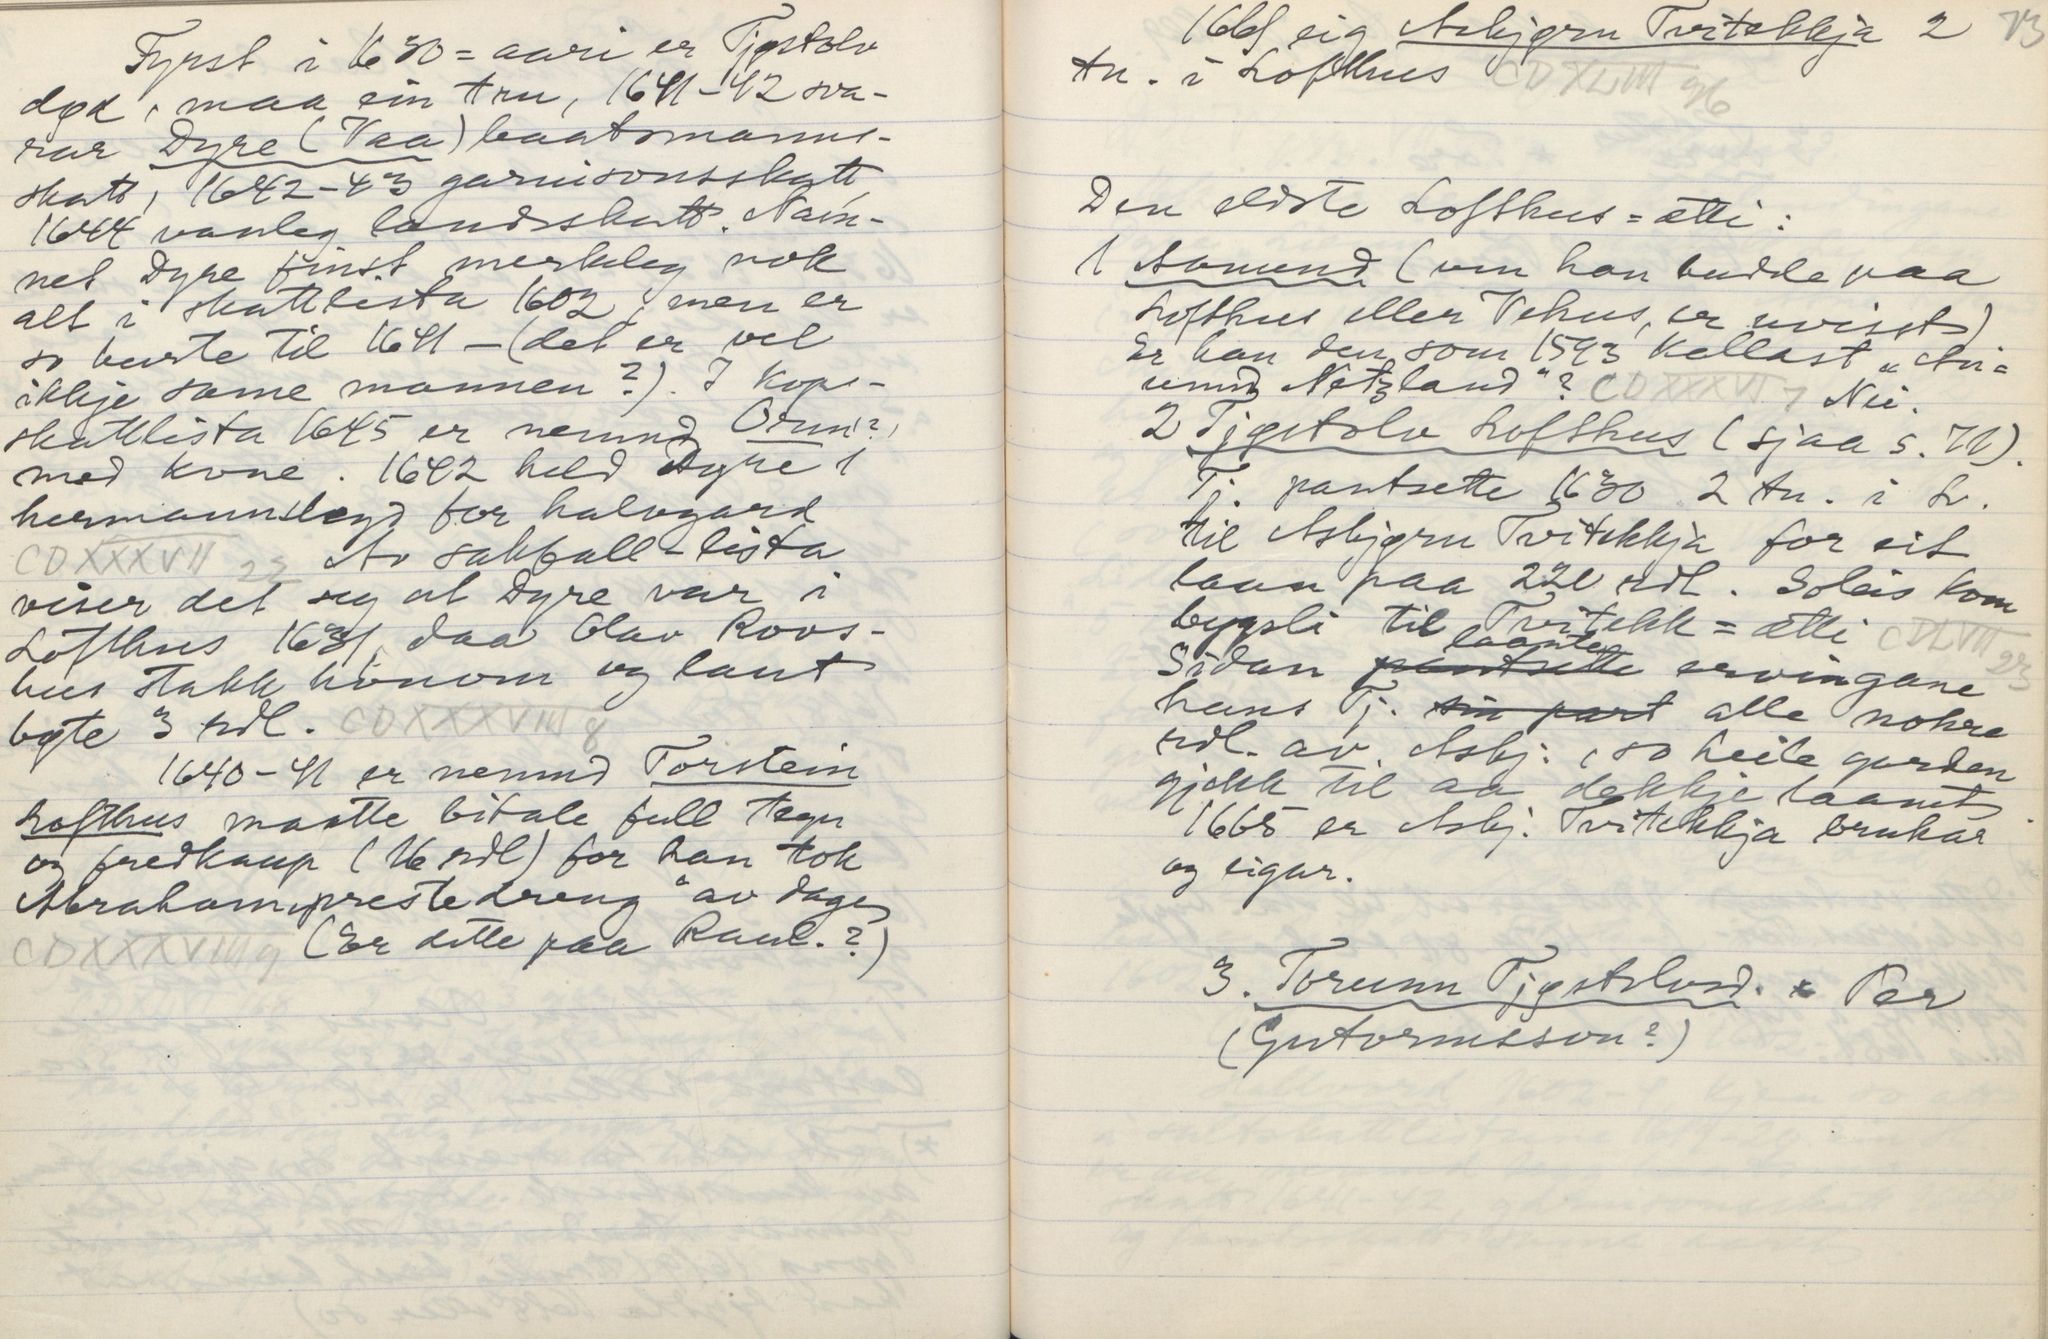 Fyrst i 1630=aari er Tjøstolv
død, maa ein tru, 1641-42 sva-
rar Dyre (Vaa) baatsmanns-
skatt, 1642-43 garnisonsskatt,
1644 vanleg landsskatt. Nam-
net Dyre finst merkeleg nok
alt i skattlista 1602, men er
so burte til 1641 - (det er vel
ikkje same mannen?). I Kopp-
skattlista 1645 er nemnd Orm?,
med kone. 1642 held Dyre 1
hermannslegd for halvgard
CDXXXVII 22 Av sakfall-lista
viser det seg at Dyre var i
Lofthus 1631, daa Olav Roos-
hus stakk honom og laut
bøte 3 rdl. CDXXXVIII 8
1640-41 er nemnd Torstein
Lofthus maatte bitale full tegn
og fredkaup (16 rdl) for han tok
Abraham prestedreng "av dage"
CDXXXVIII 9 (Er dette paa Raul.?)
1661 eig Asbjørn Tvitekkja 2 73
tn. i Lofthus CDXLIII 96
Den eldste Lofthus=ætti:
1 Aamund (um han budde paa
Lofthus eller Vehus, er uvisst)
Er han den som 1593 kallast "Am=
und Netzland"? CDXXXVI 7 Nei.
2 Tjøstolv Lofthus (sjaa s. 71).
Tj. pantsette 1630 2 tn. i L.
til Asbjørn Tvitekkja for eit
laan paa 220 rdl. Soleis kom
bygsli til Tvitekk=ætti CDLVII 93
Sidan pantsette laante ervingane
hans Tj. sin part alle nokre
rdl. av Asbj., so heile garden
gjekk til aa dekkje laanet
1665 er Asbj. Tvitekkja brukar
og eigar.
3. Torunn Tjøstolvsd. x Per
(Gutormsson?)